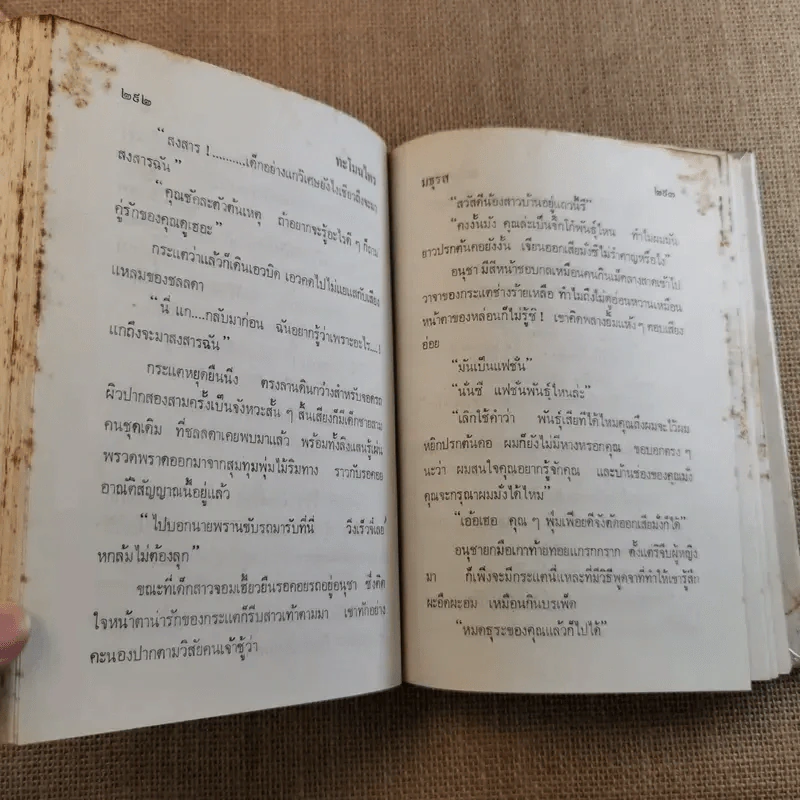 ๒๙๒
ทะโมนไพร
“สงสาร !..........เด็กอย่างแกวิเศษยังไงเชียวถึงจะมา
สงสารฉัน”
“คุณชัดละตัวต้นเหตุ ถ้าอยากจะรู้อะไรดี ๆ ก็ถาม
คู่รักของคุณดูเฮอะ”
กระแตว่าแล้วก็เดินเอวบิด เอวคดไปไม่แยแสกับเสียง
แหลมของชลลดา
“นี่ แก....กลับมาก่อน ฉันอยากรู้ว่าเพราะอะไร....!
แกถึงจะมาสงสารฉัน”
กระแตหยุดยืนนิ่ง ตรงลานดินกว้างสำหรับจอดรถ
ผิวปากสองสามครั้งเป็นจังหวะสั้น ๆ สิ้นเสียงก็มีเด็กชายสาม
คนชุดเดิม ที่ชลลดาเคยพบมาแล้ว พร้อมทั้งลิงแสนรู้เผ่น
พรวดพราดออกมาจากสุมทุมพุ่มไม้ริมทาง ราวกับรอคอย
อาณัติสัญญาณนี้อยู่แล้ว
“ไปบอกนายพรานขับรถมารับที่นี่ วิ่งเร็วจี๋เธอ
หกล้มไม่ต้องลุก”
ขณะที่เด็กสาวจอมเฮี้ยวยืนรอคอยรถอยู่อนุชา ซึ่งติด
ใจหน้าตาน่ารักของกระแตก็รีบสาวเท้าตามมา เขาทักอย่าง
คะนองปากตามวิสัยคนเจ้าชู้ว่า
มธุรส
๒๙๓
“สวัสดีน้องสาวบ้านอยู่แถวนี้รึ”
“คงงั้นมัง คุณล่ะเป็นจิ๊กโก๋พันธุ์ไหน ทำไมผมมัน
ยาวปรกต้นคอยังงั้น เจียนออกเสียมั่งซีไม่รำคาญหรือไง”
อนุชา มีสีหน้าชอบกลเหมือนคนกินเม็ดลางสาดเข้าไป
วาจาของกระแตช่างร้ายเหลือ ทำไมถึงไม่ดูอ่อนหวานเหมือน
หน้าตาของหล่อนก็ไม่รู้ซิ ! เขาคิดพลางยิ้มแห้ง ๆ ตอบเสียง
อ่อย
“มันเป็นแฟชั่น”
“นั่นซี แฟชั่นพันธุ์ไหนล่ะ”
“เลิกใช้คำว่า พันธุ์เสียทีได้ไหมคุณถึงผมจะไว้ผม
หยิกปรกต้นคอ ผมก็ยังไม่มีหางหรอกคุณ ขอบอกตรง ๆ
นะว่า ผมสนใจคุณอยากรู้จักคุณ และบ้านช่องของคุณมั่ง
คุณจะกรุณาผมมั่งได้ไหม”
“เอ้อเฮอ คุณ ๆ พุ่มเฟือยดีจังตัดออกเสียมั่งก็ได้”
อนุชายกมือเกาท้ายทอยแกรกกราก ตั้งแต่รีจีบผู้หญิง
มา ก็เพิ่งจะมีกระแตนี่แหละที่มีวิธีพูดจาที่ทำให้เขารู้สึก
ผะอืดผะอม เหมือนกินบรเพ็ด
“หมดธุระของคุณแล้วก็ไปได้”